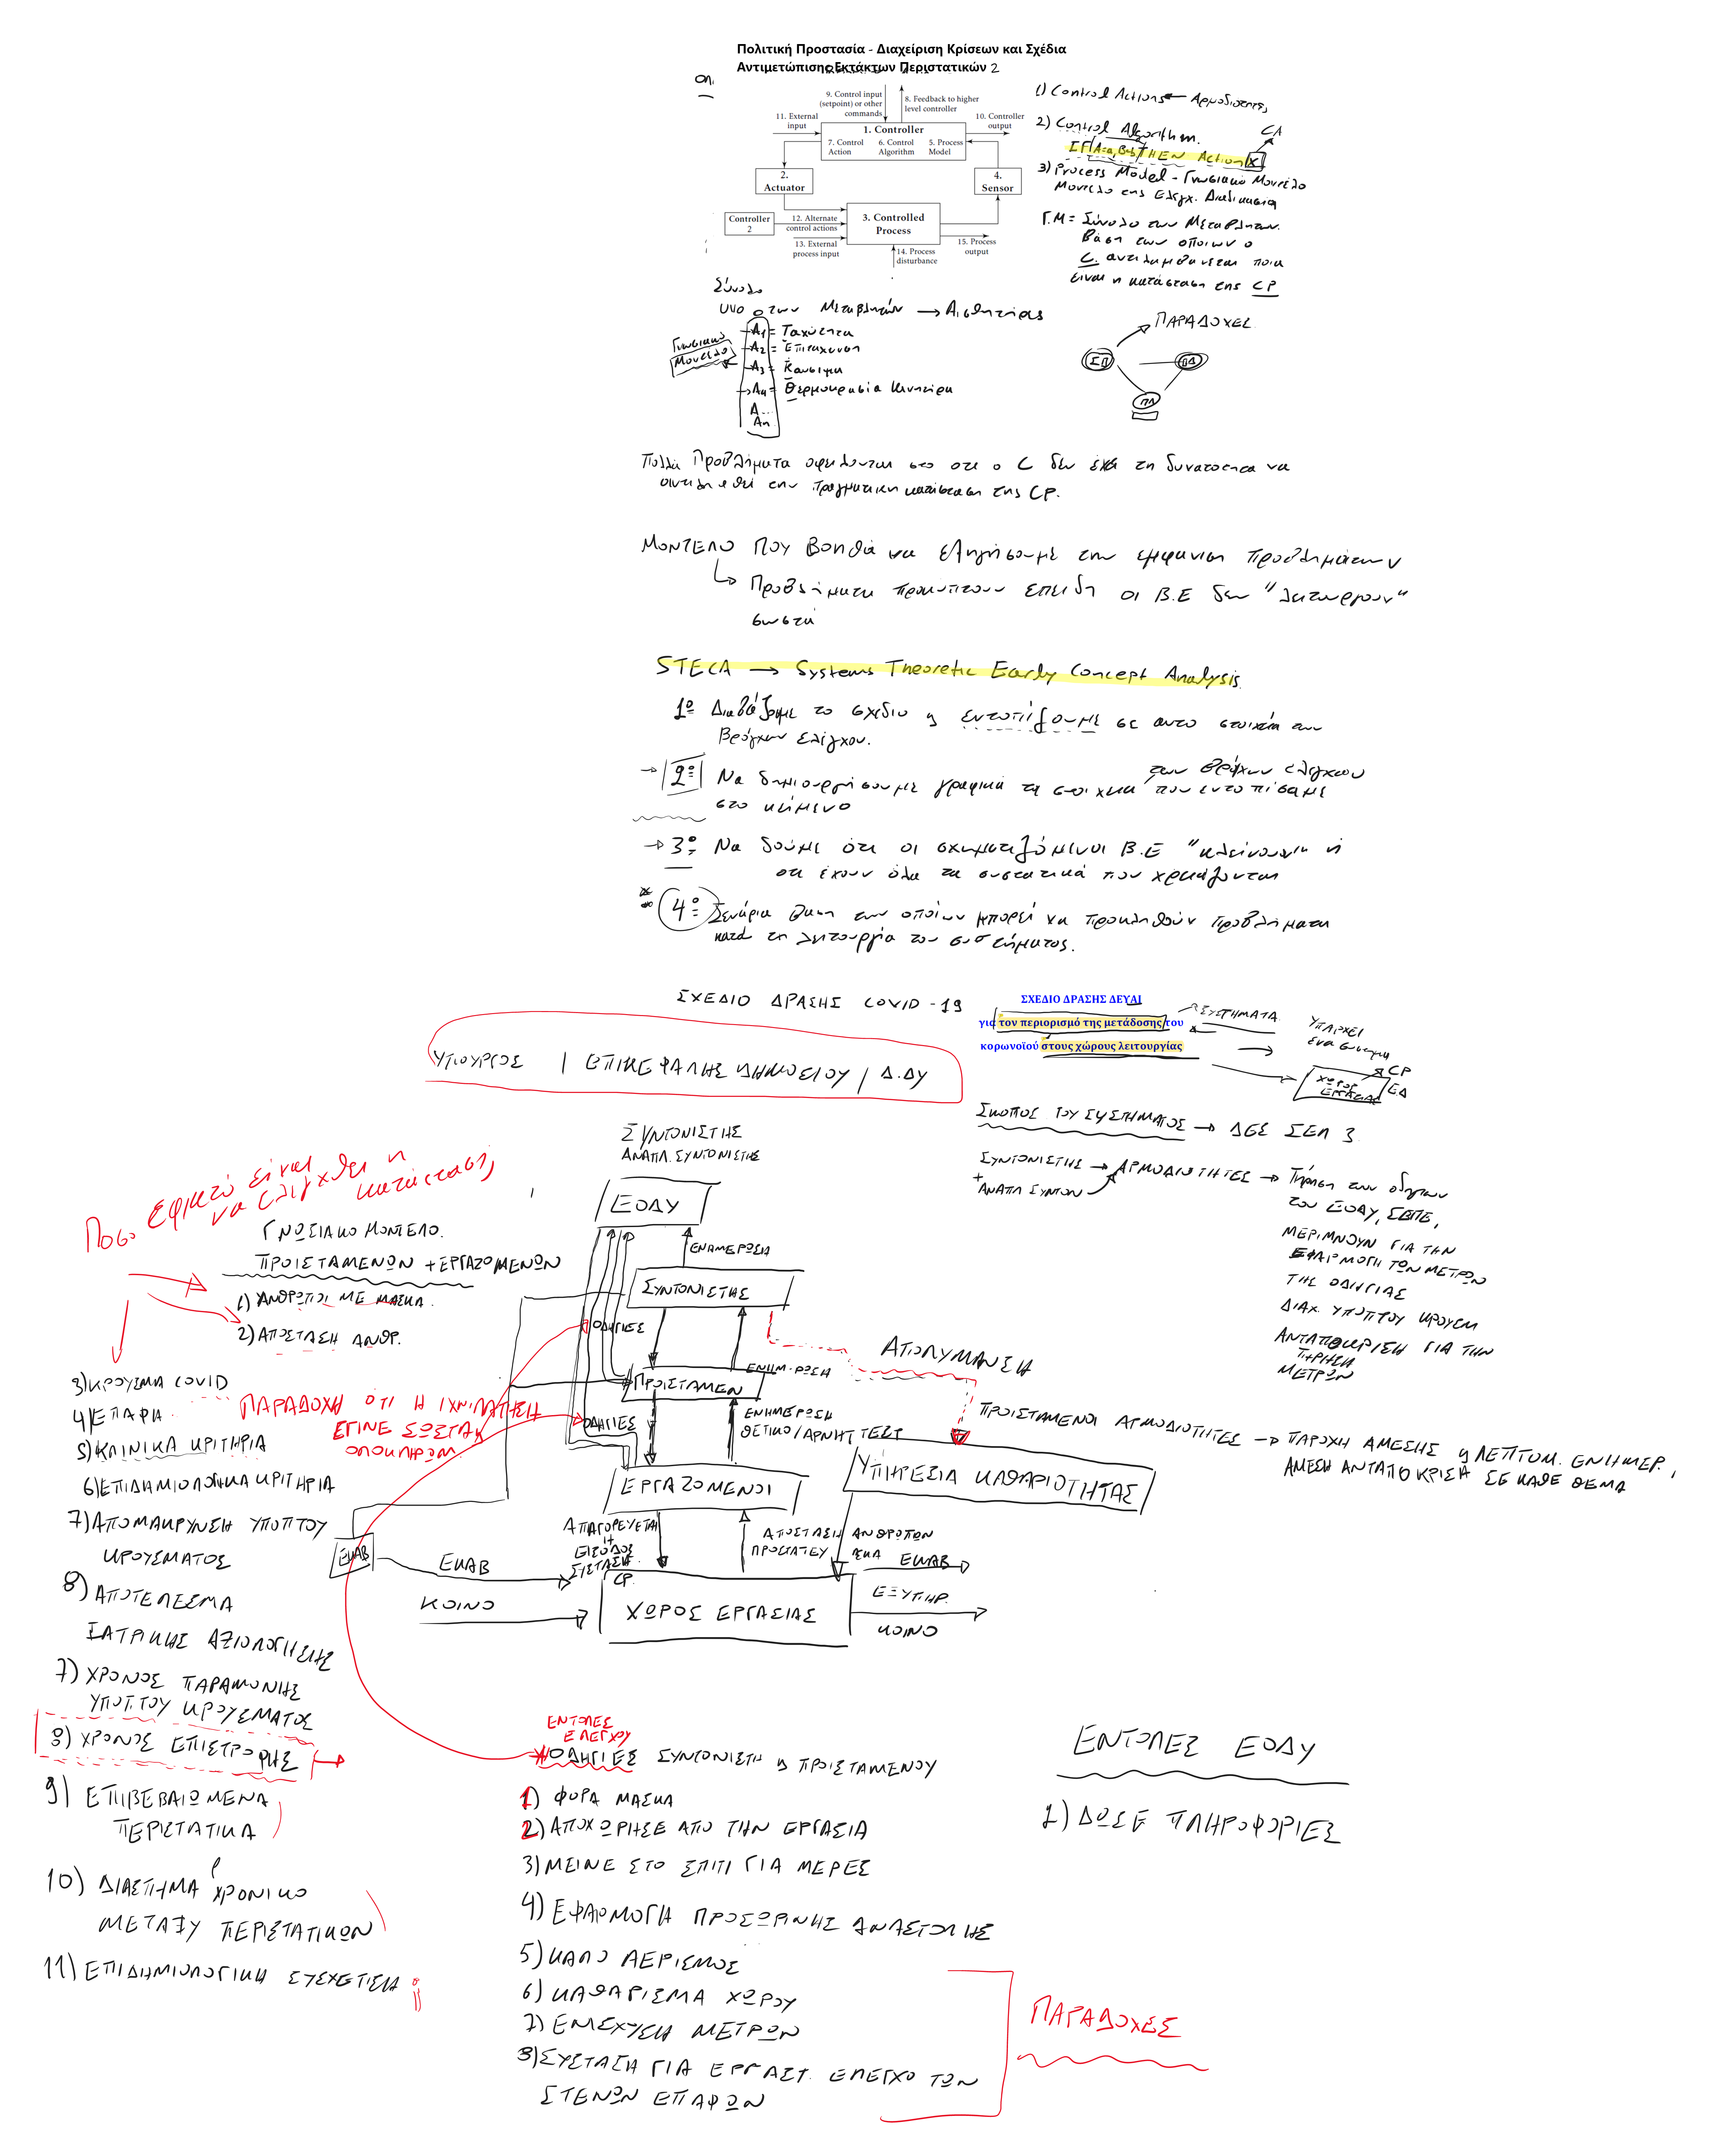 Πολιτική Προστασία - Διαχείριση Κρίσεων και Σχέδια
Αντιμετώπισης Εκτάκτων Περιστατικών 2
9. Control input
(setpoint) or other
commands
8. Feedback to higher
level controller
11. External
input
10. Controller
output
1. Controller
7. Control
Action
6. Control
Algorithm
5. Process
Model
2.
Actuator
4.
Sensor
Controller
2
12. Alternate
control actions
3. Controlled
Process
13. External
process input
14. Process
disturbance
15. Process
output
1) Control Actions ← Αρμοδιότητες
2) Control Algorithm.
CA
IF (A=a, B=b) THEN Action X
3) Process Model - Γνωσιακό Μοντέλο
Μοντέλο της Ελεγχ. Διαδικασία
Γ.Μ = Σύνολο των Μεταβλητών
βάση των οποίων ο
C. αντιλαμβάνεται ποια
είναι η κατάσταση της CP
Σύνολο
των Μεταβλητών → Αισθητήρας
Γνωσιακό
Μοντέλο
A1 = Ταχύτητα
A2 = Επιτάχυνση
A3 = Καύσιμα
A4 = Θερμοκρασία Κινητήρα
A...
An
ΠΑΡΑΔΟΧΕΣ
ΣΠ
ΠΔ
ΠΛ
Πολλά Προβλήματα οφείλονται στο οτι ο C δεν έχει τη δυνατότητα να
αντιληφθεί την πραγματική κατάσταση της CP.
ΜΟΝΤΕΛΟ ΠΟΥ βοηθά να εξηγήσουμε την εμφάνιση προβλημάτων
Προβλήματα προκύπτουν επειδή οι Β.Ε δεν "λειτουργούν"
σωστά
STECA → Systems Theoretic Early Concept Analysis.
1ο Διαβάζουμε το σχέδιο η εντοπίζουμε σε αυτό στοιχεία των
βρόγχων ελέγχου.
των βρόγχων ελέγχου
2ο Να δημιουργήσουμε γραφικά τα στοιχεία που εντοπίσαμε
στο κείμενο
3ο Να δούμε ότι οι σχηματιζόμενοι Β.Ε "κλείνουν" ή
οτι έχουν όλα τα συστατικά που χρειάζονται
4ο Σενάρια βάση των οποίων μπορεί να προκληθούν προβλήματα
κατά τη λειτουργία του συστήματος.
ΣΧΕΔΙΟ ΔΡΑΣΗΣ COVID-19
ΣΧΕΔΙΟ ΔΡΑΣΗΣ ΔΕΥΑΙ
για τον περιορισμό της μετάδοσης του
κορωνοϊού στους χώρους λειτουργίας
ΣΥΣΤΗΜΑΤΑ
ΥΠΑΡΧΕΙ
ένα σύστημα
CP
ΧΩΡΟΣ
ΕΡΓΑΣΙΑΣ
ΕΔ
ΥΠΟΥΡΓΟΣ | ΕΠΙΚΕΦΑΛΗΣ ΔΗΜΟΣΙΟΥ / Δ.ΔΥ
ΣΚΟΠΟΣ ΤΟΥ ΣΥΣΤΗΜΑΤΟΣ → ΔΕΣ ΣΕΛ 3
ΣΥΝΤΟΝΙΣΤΗΣ
ΑΝΑΠΛ. ΣΥΝΤΟΝΙΣΤΗΣ
ΣΥΝΤΟΝΙΣΤΗΣ → ΑΡΜΟΔΙΟΤΗΤΕΣ → Τήρηση των οδηγιων
+ ΑΝΑΠΛ ΣΥΝΤΟΝ
του ΕΟΔΥ, ΣΕΠΕ,
ΜΕΡΙΜΝΟΥΝ ΓΙΑ ΤΗΝ
ΕΦΑΡΜΟΓΗ ΤΩΝ ΜΕΤΡΩΝ
ΤΗΣ ΟΔΗΓΙΑΣ
ΔΙΑΧ. ΥΠΟΠΤΟΥ ΚΡΟΥΣΜ
ΑΝΤΑΠΟΚΡΙΣΗ ΓΙΑ ΤΗΝ
ΤΗΡΗΣΗ
ΜΕΤΡΩΝ
Ποσο εφικτό είναι
να ελεγχθεί η
κατάσταση
ΓΝΩΣΙΑΚΟ ΜΟΝΤΕΛΟ.
ΠΡΟΙΣΤΑΜΕΝΩΝ + ΕΡΓΑΖΟΜΕΝΩΝ
1) ΑΝΘΡΩΠΟΙ ΜΕ ΜΑΣΚΑ.
2) ΑΠΟΣΤΑΣΗ ΑΝΘΡ.
3) ΚΡΟΥΣΜΑ COVID
4) ΕΠΑΦΗ
5) ΚΛΙΝΙΚΑ ΚΡΙΤΗΡΙΑ
6) ΕΠΙΔΗΜΙΟΛΟΓΙΚΑ ΚΡΙΤΗΡΙΑ
7) ΑΠΟΜΑΚΡΥΝΣΗ ΥΠΟΠΤΟΥ
ΚΡΟΥΣΜΑΤΟΣ
8) ΑΠΟΤΕΛΕΣΜΑ
ΙΑΤΡΙΚΗΣ ΑΞΙΟΛΟΓΗΣΗΣ
7) ΧΡΟΝΟΣ ΠΑΡΑΜΟΝΗΣ
ΥΠΟΠΤΟΥ ΚΡΟΥΣΜΑΤΟΣ
8) ΧΡΟΝΟΣ ΕΠΙΣΤΡΟΦΗΣ
9) ΕΠΙΒΕΒΑΙΩΜΕΝΑ
ΠΕΡΙΣΤΑΤΙΚΑ
10) ΔΙΑΣΤΗΜΑ ΧΡΟΝΙΚΟ
ΜΕΤΑΞΥ ΠΕΡΙΣΤΑΤΙΚΩΝ
11) ΕΠΙΔΗΜΙΟΛΟΓΙΚΗ ΣΥΣΧΕΤΙΣΗ
ΠΑΡΑΔΟΧΗ ΟΤΙ Η ΙΧΝΙΛΑΤΗΣΗ
ΕΓΙΝΕ ΣΩΣΤΑ
ΟΛΟΚΛΗΡΩΜ.
ΕΟΔΥ
ΕΝΗΜΕΡΩΣΗ
ΣΥΝΤΟΝΙΣΤΗΣ
ΟΔΗΓΙΕΣ
ΕΝΗΜΕΡΩΣΗ
ΠΡΟΙΣΤΑΜΕΝ
ΟΔΗΓΙΕΣ
ΕΝΗΜΕΡΩΣΗ
ΘΕΤΙΚΟ/ΑΡΝΗΤ ΤΕΣΤ
ΑΠΟΛΥΜΑΝΣΗ
ΠΡΟΙΣΤΑΜΕΝΟΙ ΑΡΜΟΔΙΟΤΗΤΕΣ → ΠΑΡΟΧΗ ΑΜΕΣΗΣ η ΛΕΠΤΟΜ. ΕΝΗΜΕΡ.,
ΑΜΕΣΗ ΑΝΤΑΠΟΚΡΙΣΗ ΣΕ ΚΑΘΕ ΘΕΜΑ
ΕΡΓΑΖΟΜΕΝΟΙ
ΥΠΗΡΕΣΙΑ ΚΑΘΑΡΙΟΤΗΤΑΣ
ΑΠΑΓΟΡΕΥΕΤΑΙ
Η
ΕΙΣΟΔΟΣ
ΣΥΣΤΑΣΗ
ΑΠΟΣΤΑΣΗ ΑΝΘΡΩΠΩΝ
CP
ΕΚΑΒ
ΕΚΑΒ
ΚΟΙΝΟ
ΧΩΡΟΣ ΕΡΓΑΣΙΑΣ
ΕΚΑΒ
ΕΞΥΠΗΡ.
ΚΟΙΝΟ
ΕΝΤΟΛΕΣ
ΕΛΕΓΧΟΥ
ΟΔΗΓΙΕΣ ΣΥΝΤΟΝΙΣΤΗ η ΠΡΟΙΣΤΑΜΕΝΟΥ
1) ΦΟΡΑ ΜΑΣΚΑ
2) ΑΠΟΧΩΡΗΣΕ ΑΠΟ ΤΗΝ ΕΡΓΑΣΙΑ
3) ΜΕΙΝΕ ΣΤΟ ΣΠΙΤΙ ΓΙΑ ΜΕΡΕΣ
4) ΕΦΑΡΜΟΓΗ ΠΡΟΣΩΡΙΝΗΣ ΑΝΑΣΤΟΛΗΣ
5) ΚΑΛΟ ΑΕΡΙΣΜΟΣ
6) ΚΑΘΑΡΙΣΜΑ ΧΩΡΟΥ
7) ΕΝΙΣΧΥΣΗ ΜΕΤΡΩΝ
8) ΣΥΣΤΑΣΗ ΓΙΑ ΕΡΓΑΣΤ. ΕΛΕΓΧΟ ΤΩΝ
ΣΤΕΝΩΝ ΕΠΑΦΩΝ
ΠΑΡΑΔΟΧΕΣ
ΕΝΤΟΛΕΣ ΕΟΔΥ
1) ΔΩΣΕ ΠΛΗΡΟΦΟΡΙΕΣ